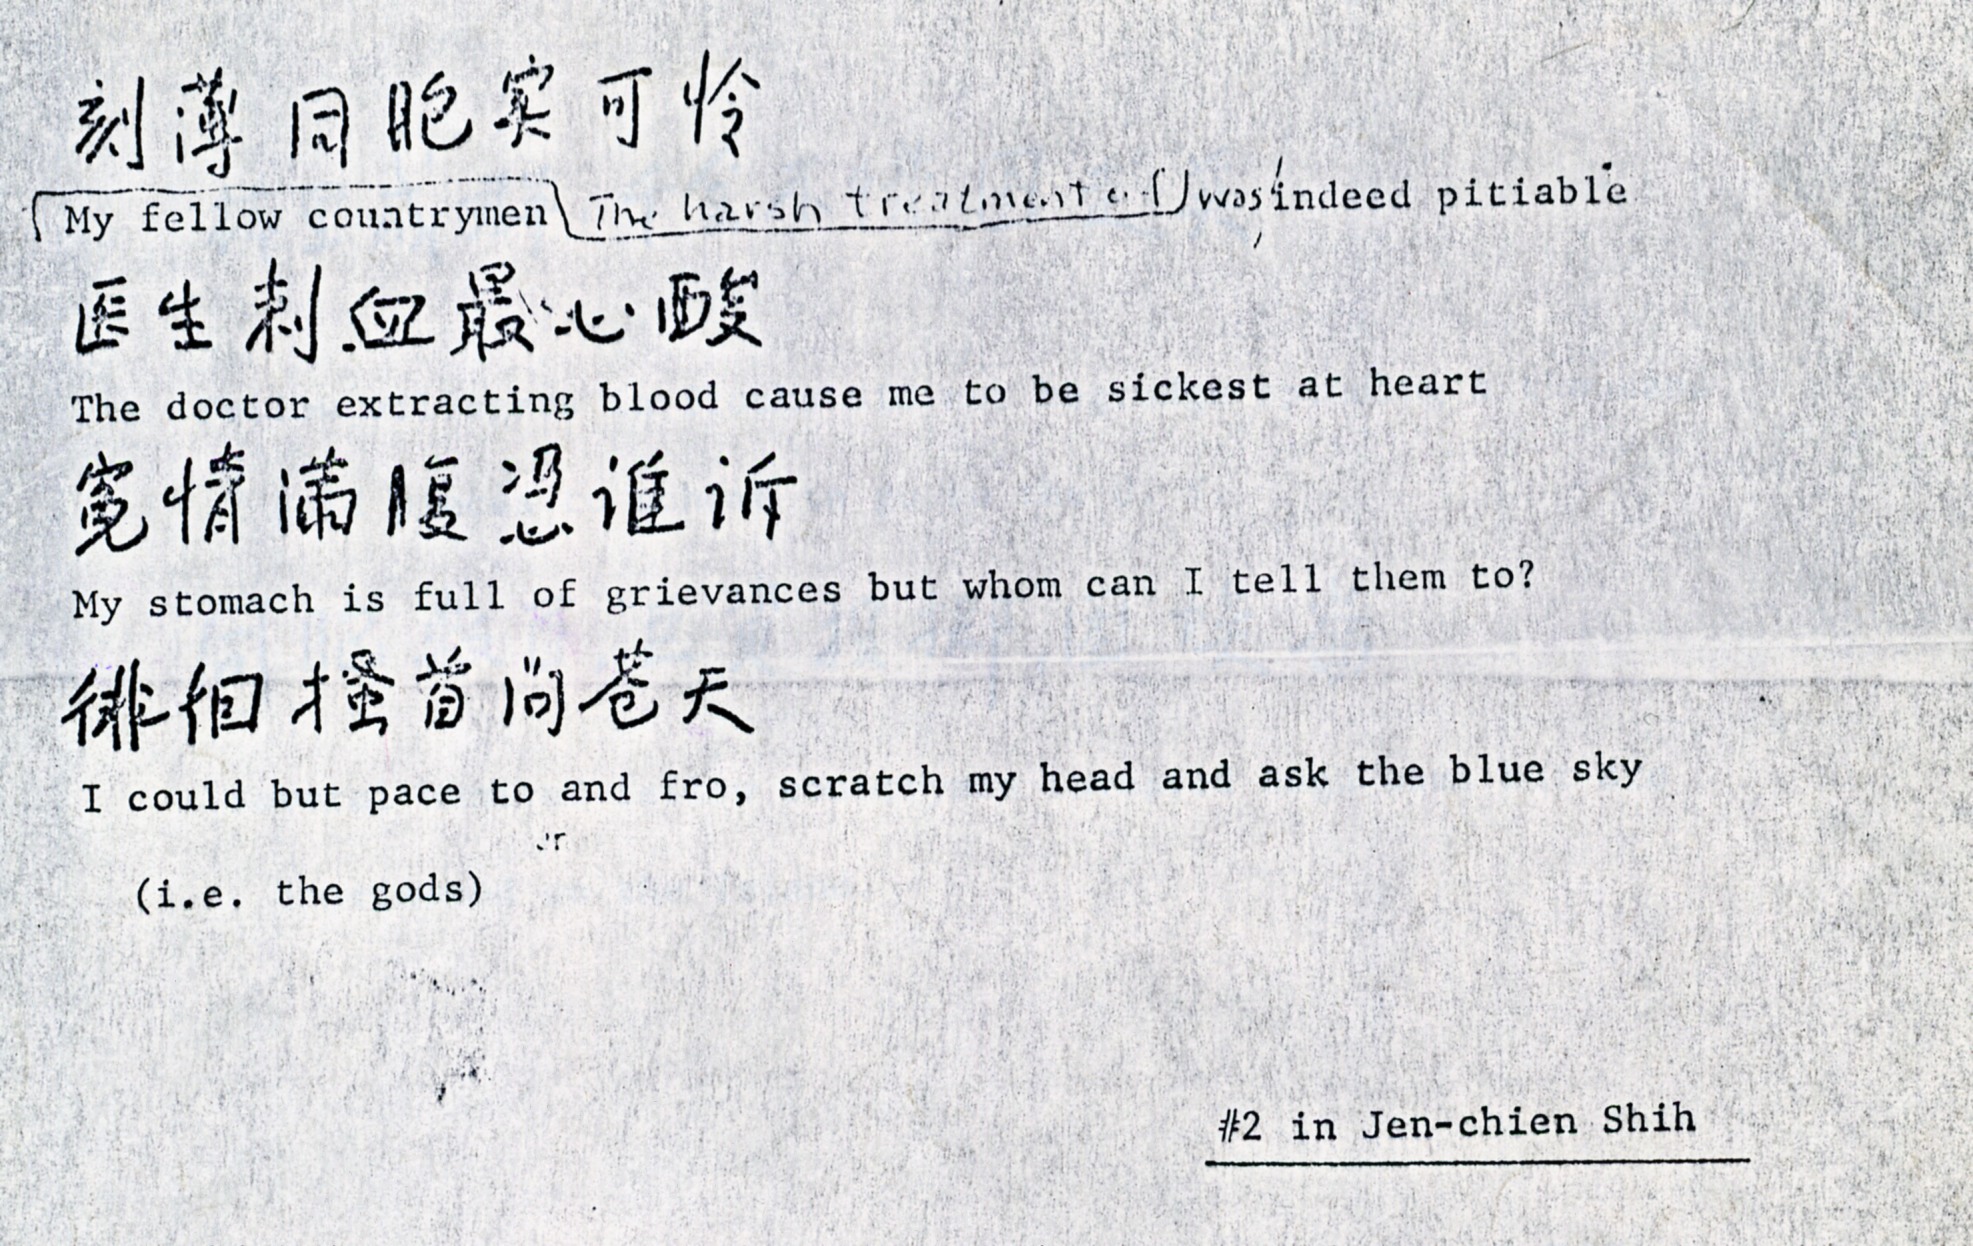 刻薄同胞实可怜
My fellow countrymen The harsh treatment of was indeed pitiable
医生刺血最心酸
The doctor extracting blood cause me to be sickest at heart
寃情满腹凴谁诉
My stomach is full of grievances but whom can I tell them to?
徘徊搔首问苍天
I could but pace to and fro, scratch my head and ask the blue sky
(i.e. the gods)
#2 in Jen-chien Shih